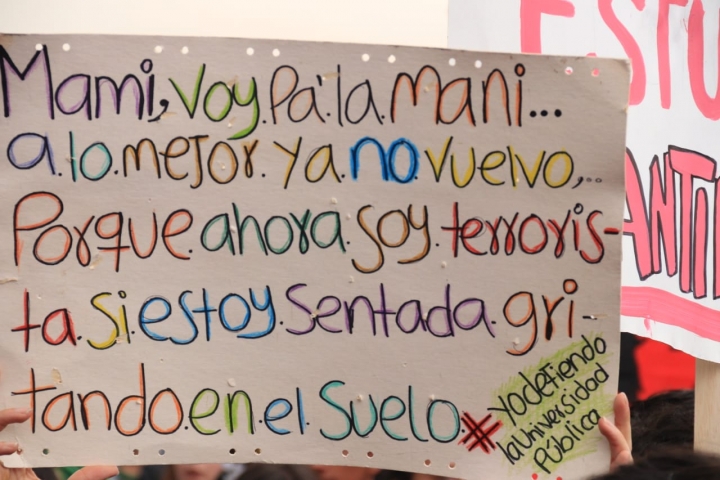 Mami, voy.Pa'.la.mani...
a.lo.mejor.ya.no.vuelvo,...
Porque.ahora.soy.terroris-
ta.Si.estoy.Sentada.gri-
tando.en.el.Suelo.
#yodefiendo
laUniversidad
Pública
ESTU
ANTI